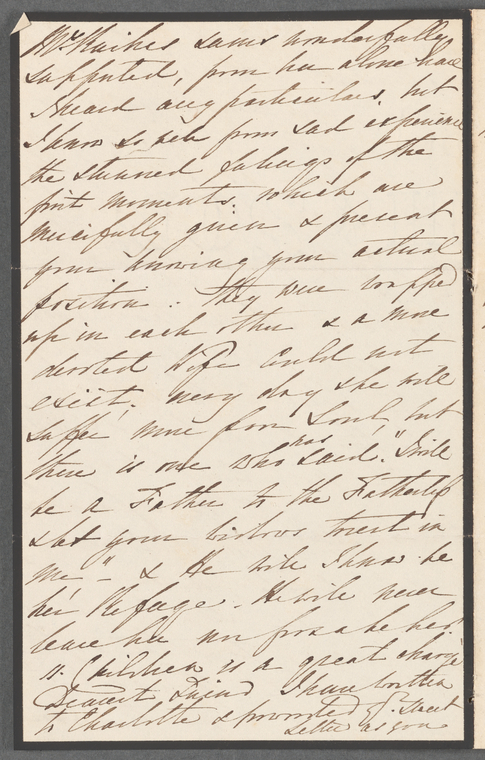 Mrs. Raikes seems wonderfully
supported, from her alone have
I heard any particulars, but
I know so well from sad experience
the stunned feelings of the
first moments, which are
mercifully given & prevent
your knowing your actual
position. They were wrapped
up in each other & a more
devoted Wife could not
exist, every day she will
suffer more poor Soul, but
there is one who has said. "I will
be a Father to the Fatherless
& let your widows trust in
me" - & He will I know be
her Refuge. He will never
leave her nor forsake her!
11. Children is a great charge
Dearest Friend I have written
to Charlotte & forwarded Sweet
Letter as you